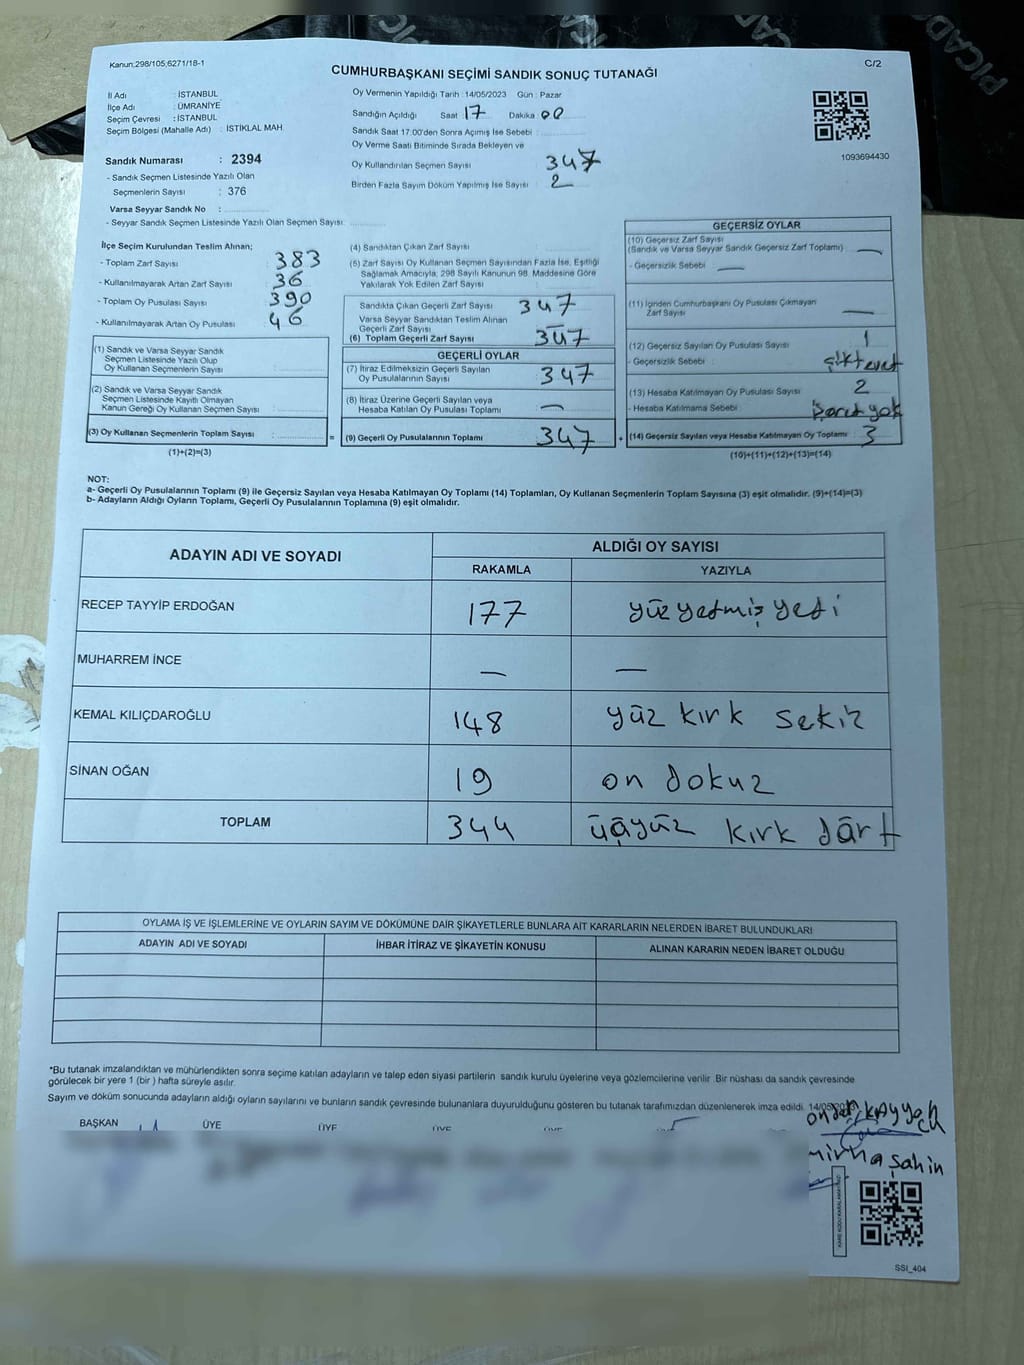 PICADO
PIC
Kanun;298/105;6271/18-1
CUMHURBAŞKANI SEÇİMİ SANDIK SONUÇ TUTANAĞI
C/2
İl Adı : İSTANBUL
İlçe Adı : ÜMRANİYE
Seçim Çevresi : İSTANBUL
Seçim Bölgesi (Mahalle Adı) : İSTİKLAL MAH
Sandık Numarası : 2394
- Sandık Seçmen Listesinde Yazılı Olan
Seçmenlerin Sayısı : 376
Varsa Seyyar Sandık No :
- Seyyar Sandık Seçmen Listesinde Yazılı Olan Seçmen Sayısı:
Oy Vermenin Yapıldığı Tarih : 14/05/2023 Gün : Pazar
Sandığın Açıldığı Saat 17 Dakika 00
Sandık Saat 17:00'den Sonra Açımış İse Sebebi :
Oy Verme Saati Bitiminde Sırada Bekleyen ve
Oy Kullandırılan Seçmen Sayısı 347
Birden Fazla Sayım Döküm Yapılmış İse Sayısı : 2
1093694430
İlçe Seçim Kurulundan Teslim Alınan;
- Toplam Zarf Sayısı : 383
- Kullanılmayarak Artan Zarf Sayısı : 36
- Toplam Oy Pusulası Sayısı : 390
- Kullanılmayarak Artan Oy Pusulası : 46
(1) Sandık ve Varsa Seyyar Sandık
Seçmen Listesinde Yazılı Olup
Oy Kullanan Seçmenlerin Sayısı :
(2) Sandık ve Varsa Seyyar Sandık
Seçmen Listesinde Kayıtlı Olmayan
Kanun Gereği Oy Kullanan Seçmen Sayısı :
(3) Oy Kullanan Seçmenlerin Toplam Sayısı : =
(1)+(2)=(3)
(4) Sandıktan Çıkan Zarf Sayısı :
(5) Zarf Sayısı Oy Kullanan Seçmen Sayısından Fazla İse, Eşitliği
Sağlamak Amacıyla; 298 Sayılı Kanunun 98. Maddesine Göre
Yakılarak Yok Edilen Zarf Sayısı :
Sandıkta Çıkan Geçerli Zarf Sayısı : 347
Varsa Seyyar Sandıktan Teslim Alınan
Geçerli Zarf Sayısı :
(6) Toplam Geçerli Zarf Sayısı : 347
GEÇERLİ OYLAR
(7) İtiraz Edilmeksizin Geçerli Sayılan
Oy Pusulalarının Sayısı : 347
(8) İtiraz Üzerine Geçerli Sayılan veya
Hesaba Katılan Oy Pusulası Toplamı : —
(9) Geçerli Oy Pusulalarının Toplamı : 347 +
GEÇERSİZ OYLAR
(10) Geçersiz Zarf Sayısı
(Sandık ve Varsa Seyyar Sandık Geçersiz Zarf Toplamı) : —
- Geçersizlik Sebebi : —
(11) İçinden Cumhurbaşkanı Oy Pusulası Çıkmayan
Zarf Sayısı : —
(12) Geçersiz Sayılan Oy Pusulası Sayısı : 1
- Geçersizlik Sebebi :
(13) Hesaba Katılmayan Oy Pusulası Sayısı : 2
- Hesaba Katılmama Sebebi : işaret yok
(14) Geçersiz Sayılan veya Hesaba Katılmayan Oy Toplamı : 3
(10)+(11)+(12)+(13)=(14)
NOT:
a- Geçerli Oy Pusulalarının Toplamı (9) ile Geçersiz Sayılan veya Hesaba Katılmayan Oy Toplamı (14) Toplamları, Oy Kullanan Seçmenlerin Toplam Sayısına (3) eşit olmalıdır. (9)+(14)=(3)
b- Adayların Aldığı Oyların Toplamı, Geçerli Oy Pusulalarının Toplamına (9) eşit olmalıdır.
ADAYIN ADI VE SOYADI
ALDIĞI OY SAYISI
RAKAMLA YAZIYLA
RECEP TAYYİP ERDOĞAN 177 yüz yetmiş yedi
MUHARREM İNCE — —
KEMAL KILIÇDAROĞLU 148 yüz kırk sekiz
SİNAN OĞAN 19 on dokuz
TOPLAM 344 üçyüz kırk dört
OYLAMA İŞ VE İŞLEMLERİNE VE OYLARIN SAYIM VE DÖKÜMÜNE DAİR ŞİKAYETLERLE BUNLARA AİT KARARLARIN NELERDEN İBARET BULUNDUKLARI
ADAYIN ADI VE SOYADI İHBAR İTİRAZ VE ŞİKAYETİN KONUSU ALINAN KARARIN NEDEN İBARET OLDUĞU
*Bu tutanak imzalandıktan ve mühürlendikten sonra seçime katılan adayların ve talep eden siyasi partilerin sandık kurulu üyelerine veya gözlemcilerine verilir. Bir nüshası da sandık çevresinde
görülecek bir yere 1 (bir ) hafta süreyle asılır.
Sayım ve döküm sonucunda adayların aldığı oyların sayılarını ve bunların sandık çevresinde bulunanlara duyurulduğunu gösteren bu tutanak tarafımızdan düzenlenerek imza edildi. 14/05/2023
BAŞKAN ÜYE ÜYE ÜYE ÜYE
Şahin
SSI_404